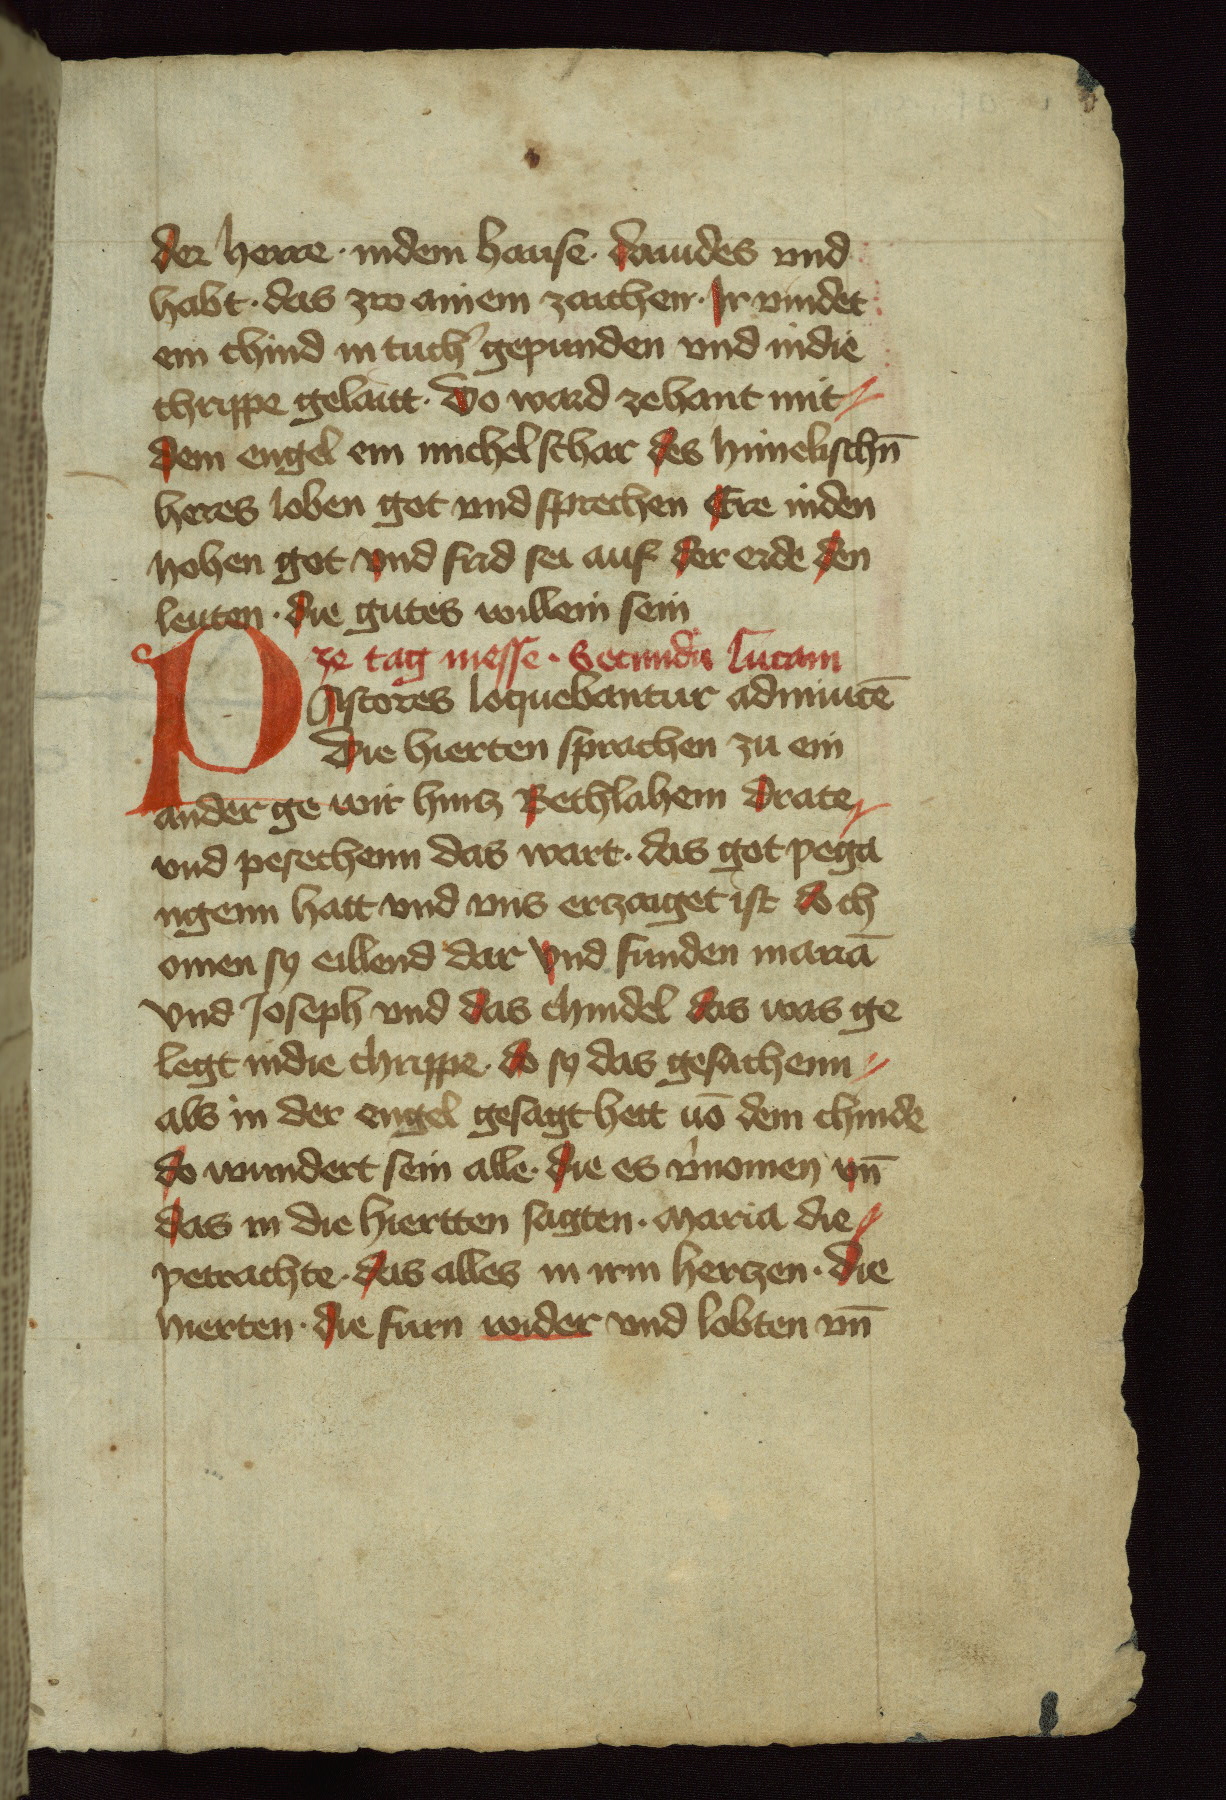 der herre · indem hause · dauides vnd
habt · das zw ainem zaichen · Ir vindet
ein chind in tuch' gepunden vnd indie
chrippe gelaitt · Do ward zehant mit
dem engel ein michel schar des himelischn̄
heres loben got vnd sprechen Ere inden
hohen got vnd frid sei auf der erde den
leuten · die gutes willein sein
ze tag messe · Secundū Lucam
PAstores loquebantur adinuicē
Die hierten sprachen zu ein
ander ge wir hintz Bethlahem drate
vnd pesechenn das wart · das got pega
ngenn hatt vnd vns ertzaiget ist do ch
omen sy eillend dar vnd funden mariā
vnd Joseph vnd das chindel das was ge
legt indie chrippe · do sy das gesachenn
als in der engel gesagt hett uō dem chinde
do wundert sein alle · die es v'nomen vn̄
das in die hiertten sagten · Maria die
petrachte · das alles in irm hertzen · die
hierten · die furn wider vnd lobten vn̄